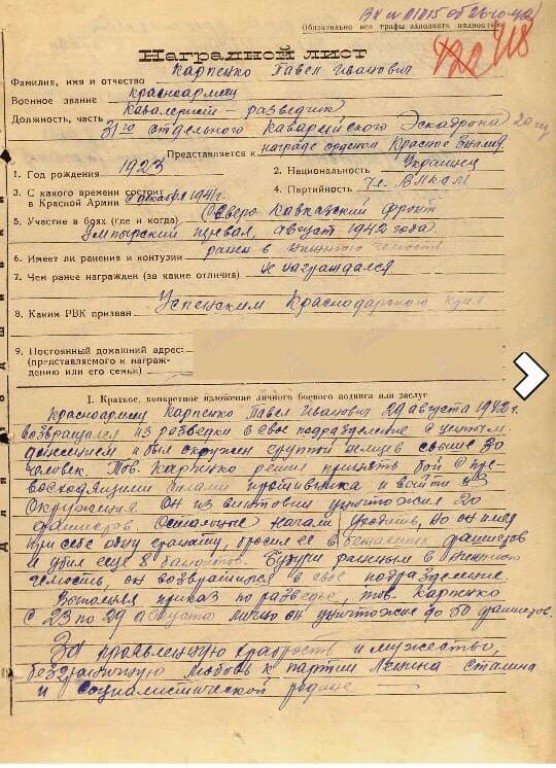 ВХ № 01015 от 26.10.42
(обязательно все графы заполнять полностью)
118
Наградной лист
Фамилия, имя и отчество Карпенко Павел Иванович
Военное звание красноармеец
Должность, часть Кавалерист - разведчик
31го отдельного Кавалерийского Эскадрона 20 гсд
Представляется к награде орденом Красное Знамя
1. Год рождения 1923 2. Национальность Украинец
3. С какого времени состоит в Красной Армии с декабря 1941 г. 4. Партийность чл. ВЛКСМ
5. Участие в боях (где и когда) Северо Кавказский фронт
Умпырский перевал, август 1942 года
6. Имеет ли ранения и контузии ранен в
7. Чем ранее награжден (за какие отличия) не награждался
8. Каким РВК призван Успенским Краснодарского Края
9. Постоянный домашний адрес:
(представляемого к награждению или его семьи)
I. Краткое, конкретное изложение личного боевого подвига или заслуг
Красноармеец Карпенко Павел Иванович 29 августа 1942 г.
возвращался из разведки в свое подразделение с ценным
донесением и был окружен группой немцев свыше 30
человек. Тов. Карпенко решил принять бой с пре-
восходящими силами противника и войти из
Окружения. Он из винтовки уничтожил 20
фашистов. Остальные начали уходить, но он имел
при себе одну гранату, бросил ее в бегающих фашистов
и убил еще 8 бандитов. Будучи раненым в
челюсть, он возвратился в свое подразделение
Выполняя приказ по разведке, тов. Карпенко
с 23 по 29 августа лично он уничтожил до 50 фашистов.
За проявленную храбрость и мужество,
безграничную любовь к партии Ленина - Сталина
и социалистической родине